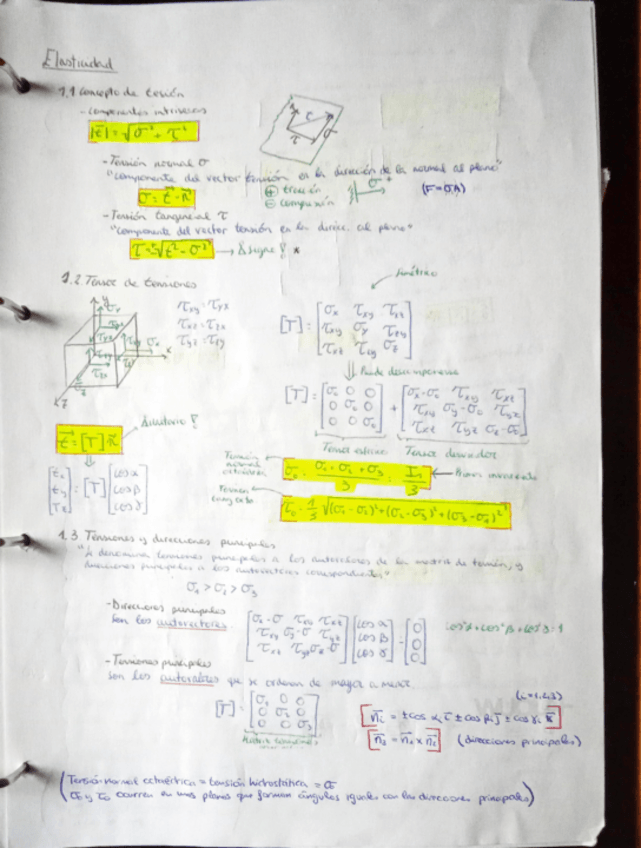 Elasticidad
1.1 Concepto de tensión
- Componentes intrínsecas
|t⃗| = √σ² + τ²
- Tensión normal σ
"componente del vector tensión en la dirección de la normal al plano"
σ = t⃗ · n⃗
⊕ tracción
⊖ compresión
(F = σA)
- Tensión tangencial τ
"componente del vector tensión en la direcc. al plano"
τ = ±√t² - σ² → signo! *
1.2 Tensor de tensiones
simétrico
τxy = τyx
τxz = τzx
τyz = τzy
[T] = [σx τxy τxz
τxy σy τyz
τxz τyz σz]
Puede descomponerse
[T] = [σ₀ 0 0
0 σ₀ 0
0 0 σ₀] + [σx-σ₀ τxy τxz
τxy σy-σ₀ τyz
τxz τyz σz-σ₀]
Tensor esférico Tensor desviador
t⃗ = [T] n⃗
unitario!
[tx
ty
tz] = [T] [cos α
cos β
cos γ]
Tensión normal octaédrica
σ₀ = σ₁ + σ₂ + σ₃ / 3 = I₁ / 3
Primer invariante
τ₀ = 1/3 √(σ₁-σ₂)² + (σ₂-σ₃)² + (σ₃-σ₁)²
1.3 Tensiones y direcciones principales
"Se denomina tensiones principales a los autovalores de la matriz de tensión, y
direcciones principales a los autovectores correspondientes"
σ₁ > σ₂ > σ₃
- Direcciones principales
son los autovectores
[σx-σ τxy τxz
τxy σy-σ τyz
τxz τyz σz-σ] [cos α
cos β
cos γ] = [0
0
0]
cos²α + cos²β + cos²γ = 1
- Tensiones principales
son los autovalores que se ordenan de mayor a menor
[T] = [σ₁ 0 0
0 σ₂ 0
0 0 σ₃]
(i = 1,2,3)
n⃗i = ± cos αi i⃗ ± cos βi j⃗ ± cos γi k⃗
(direcciones principales)
(Tensión normal octaédrica = tensión hidrostática = σ₀
σ₀ y τ₀ ocurren en unos planos que forman ángulos iguales con las direcciones principales)